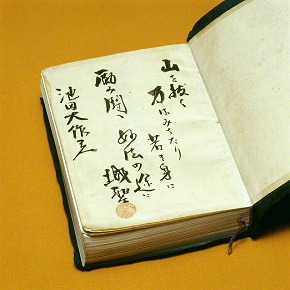 山を抜く
力はみちたり
若き身に
励み闘へ
妙法の途に
城聖
池田大作兄